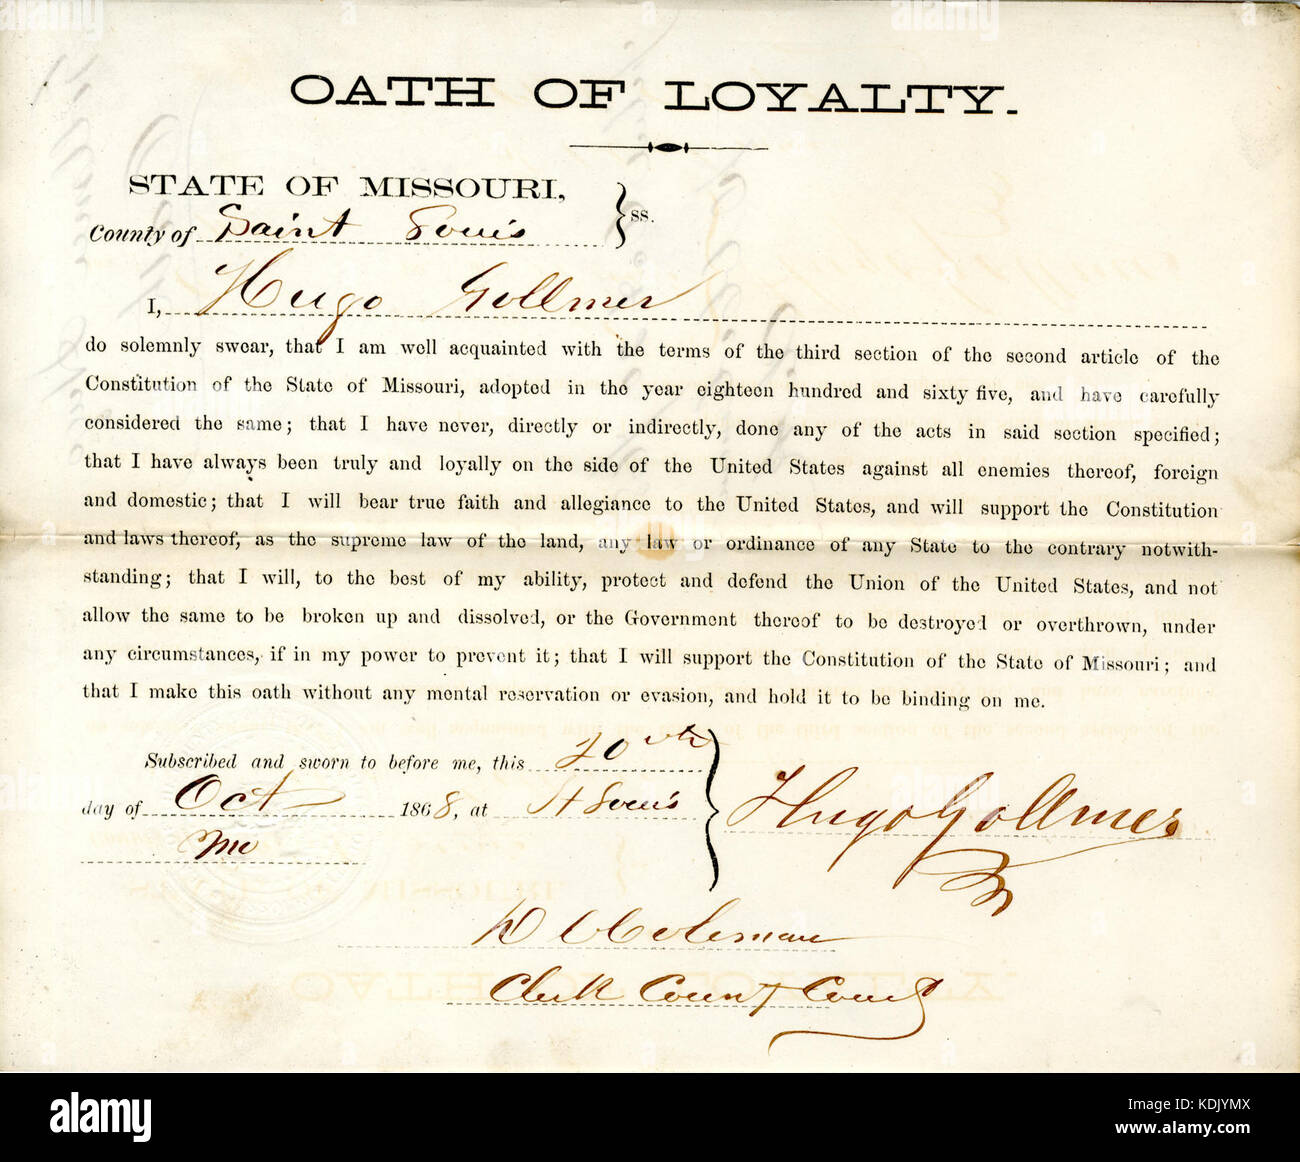 OATH OF LOYALTY.
STATE OF MISSOURI,
County of Saint Louis
} ss.
I, Hugo Gollmer
do solemnly swear, that I am well acquainted with the terms of the third section of the second article of the
Constitution of the State of Missouri, adopted in the year eighteen hundred and sixty five, and have carefully
considered the same; that I have never, directly or indirectly, done any of the acts in said section specified;
that I have always been truly and loyally on the side of the United States against all enemies thereof, foreign
and domestic; that I will bear true faith and allegiance to the United States, and will support the Constitution
and laws thereof, as the supreme law of the land, any law or ordinance of any State to the contrary notwith-
standing; that I will, to the best of my ability, protect and defend the Union of the United States, and not
allow the same to be broken up and dissolved, or the Government thereof to be destroyed or overthrown, under
any circumstances, if in my power to prevent it; that I will support the Constitution of the State of Missouri; and
that I make this oath without any mental reservation or evasion, and hold it to be binding on me.
Subscribed and sworn to before me, this 20th
day of Oct 1868, at St Louis
Mo
Hugo Gollmer
Coleman
Clerk County Court
alamy
Image ID: KD1YMX
www.alamy.com